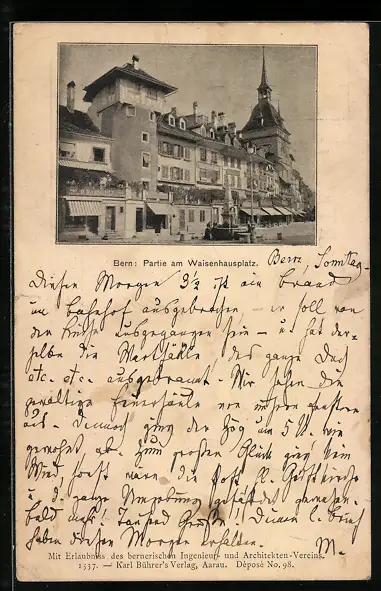 Bern: Partie am Waisenhausplatz.
Bern, Sonntag.
Diesen Morgen 9½ ist ein Brand
im Bahnhof ausgebrochen, – er soll von
der Küche ausgegangen sein – u. hat der-
selbe die Wartsääle, das ganze Dach
etc. etc. ausgebrannt. Wir sahen die
gewaltige Feuersäule von unsern Fenstern
aus. Dennoch ging der Zug um 5 U. wie
gewohnt ab. Zum großen Glück ging kein
Wind, sonst wäre die Post, hl. Geistkirche
u. d. ganze Umgebung gefährdet gewesen.
Bald mehr! Tausend Grüße! Deinen l. Brief
haben diesen Morgen erhalten. M.
Mit Erlaubniss des bernerischen Ingenieur- und Architekten-Vereins.
1537. — Karl Bührer's Verlag, Aarau. Déposé No. 98.